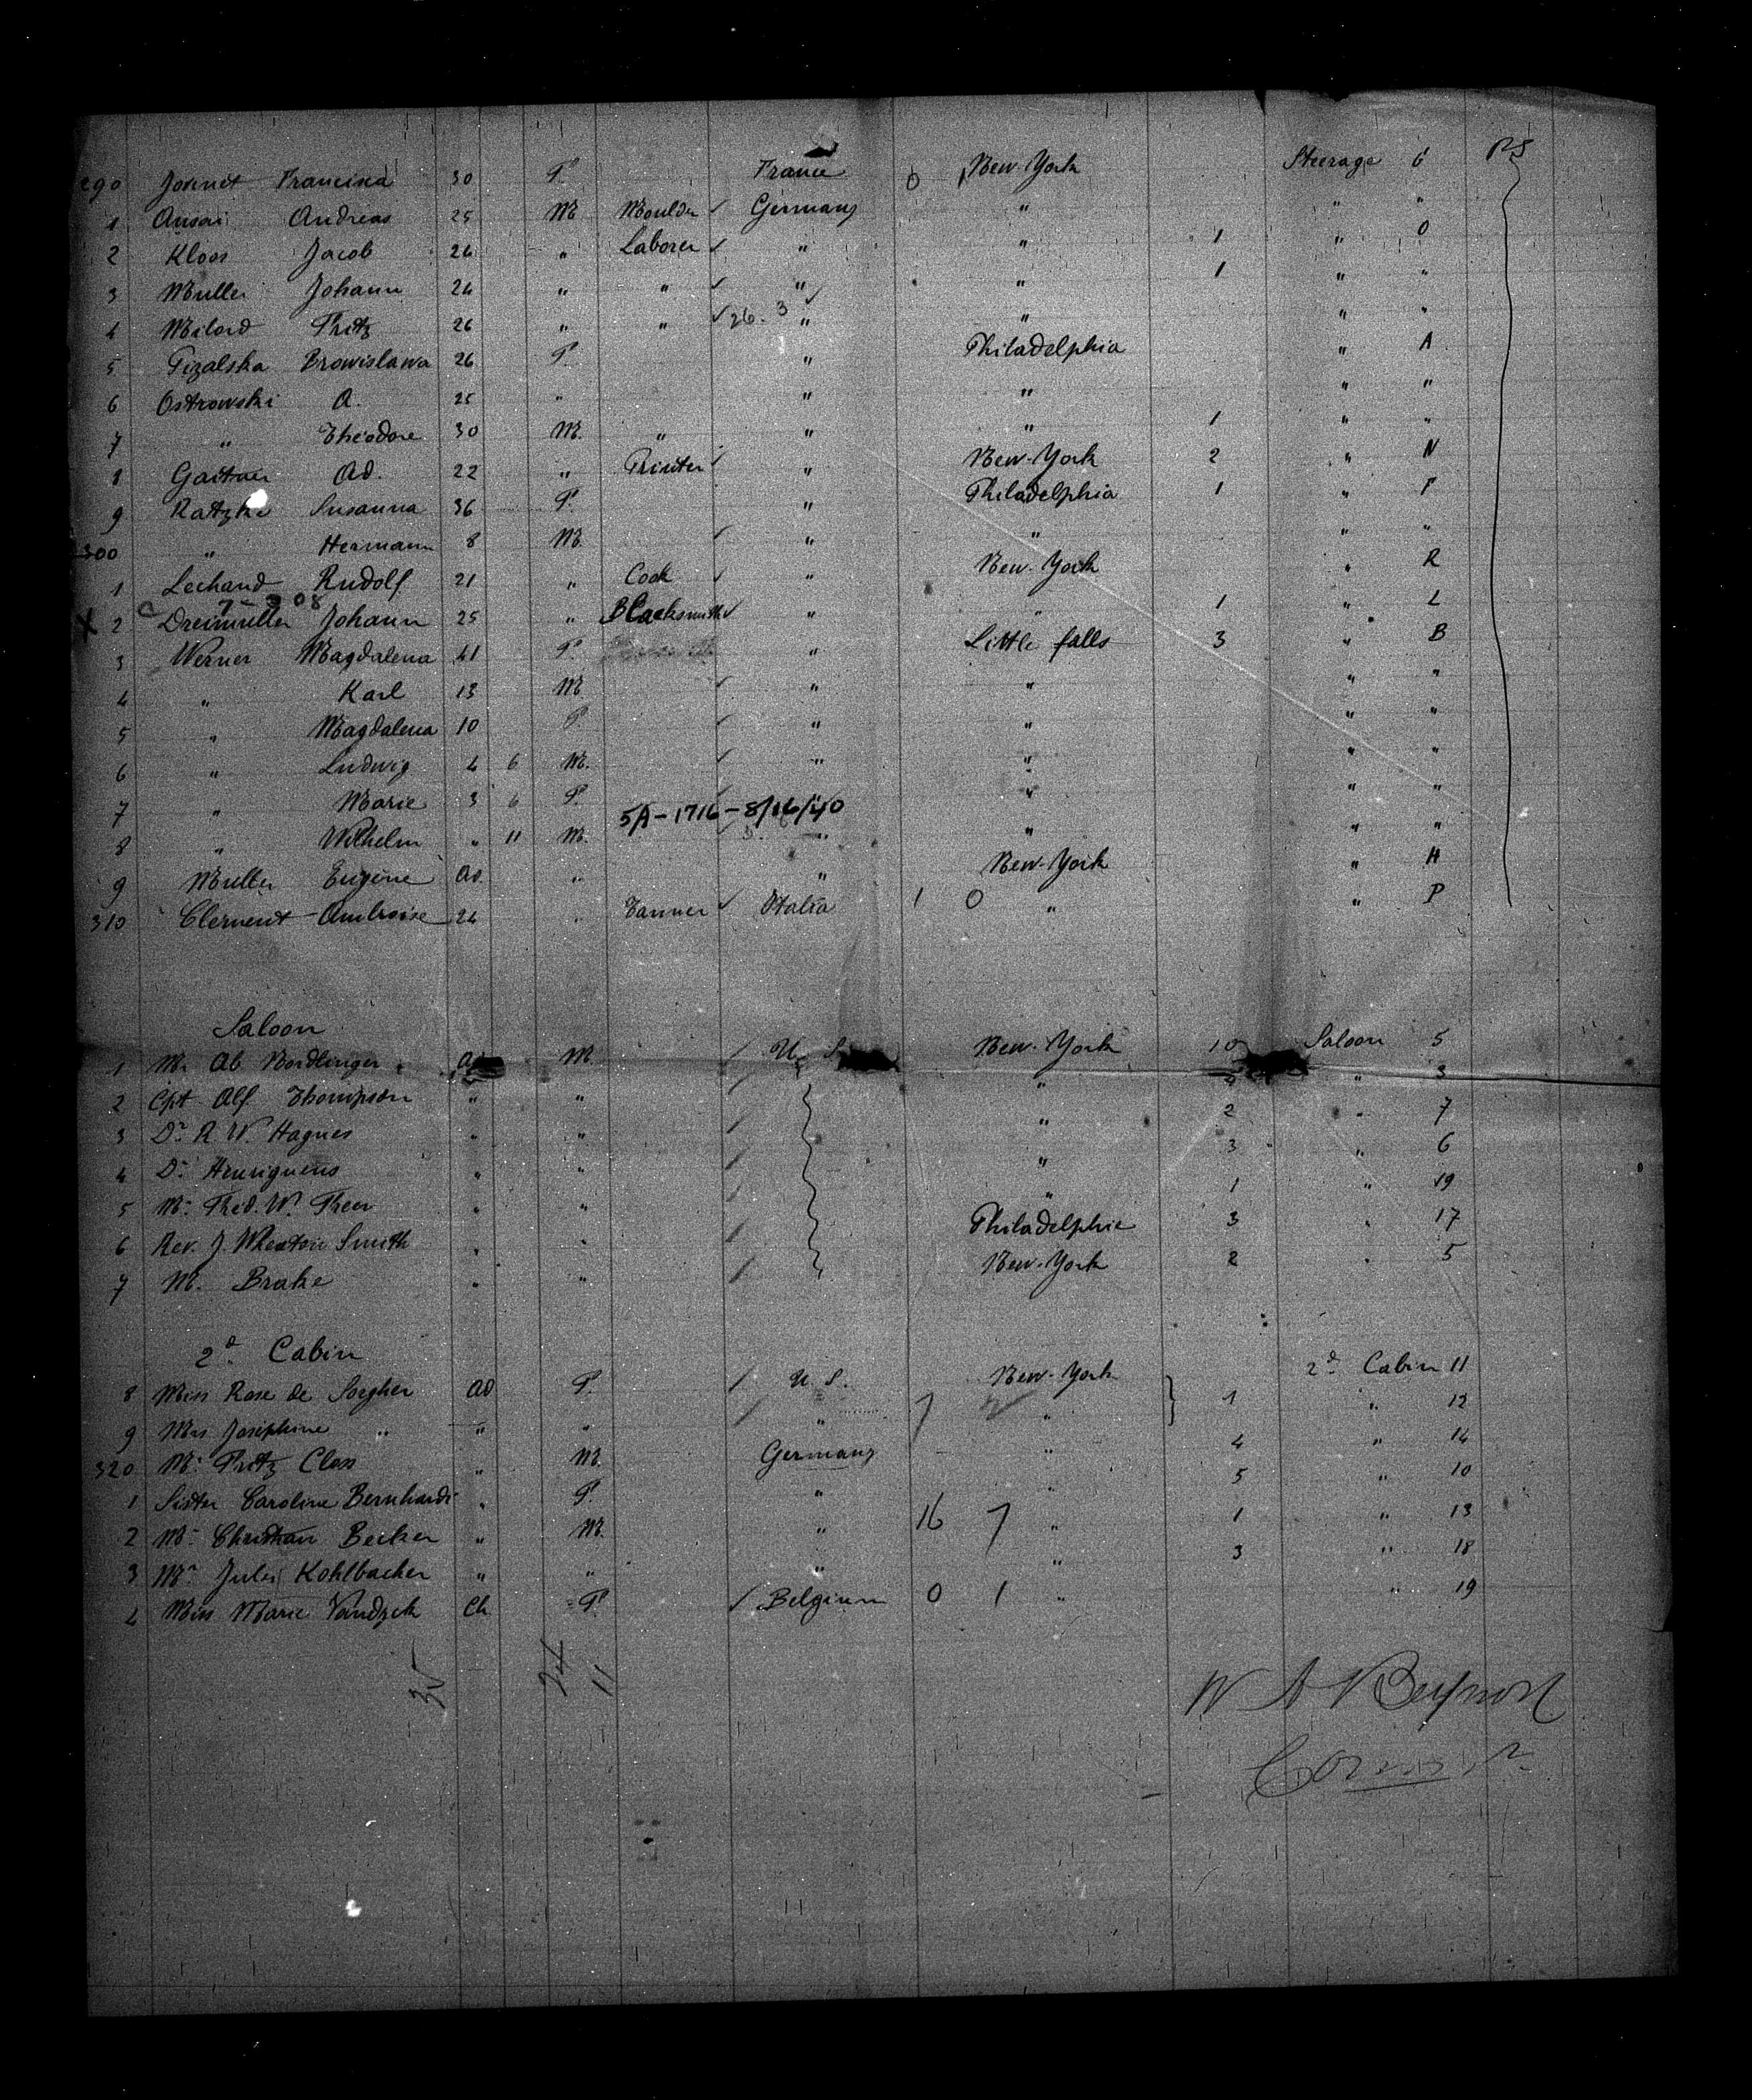 290 Francisca 30 F. France 0 New-York Steerage G
1 Andreas 25 M Moulder ✓ Germany " " "
2 Kloos Jacob 26 " Laborer ✓ " " 1 " O
3 Muller Johann 24 " " ✓ " " 1 " "
4 Milord Fritz 26 " " ✓ 26. 3 ✓ " " " "
5 Browislawa 26 F. " Philadelphia " A
6 Ostrowski A. 25 " " " " "
7 " Theodore 30 M. " " " 1 " "
8 Gartner Ad. 22 " Printer ✓ " New-York 2 " N
9 Ratzke Susanna 36 F. " Philadelphia 1 " F
300 " Hermann 8 M. ✓ " " " "
1 Lechand Rudolf 21 " Cook ✓ " New-York " R
X 2 Dreimuller Johann 25 " Blacksmith ✓ " " 1 " L
3 Werner Magdalena 41 F. " Little falls 3 " B
4 " Karl 13 M ✓ " " " "
5 " Magdalena 10 F ✓ " " " "
6 " Ludwig 4 6 M. ✓ " " " "
7 " Marie 3 6 F. " " " "
5/A-1716-8/16/40
8 " Wilhelm " 11 M. " " " "
9 Muller Eugene Ad. " " New-York " H
310 Clement Ambroise 24 " Tanner ✓ Italia 1 0 " " P
Saloon
1 Mr Ab Nordlinger Ad M. U. S. New-York 10 Saloon 5
2 Cpt Alf Thompson " " " " 3
3 Dr R W. Hagues " " " 2 " 7
4 Dr " " " 3 " 6
5 Mr Fred. W. " " " 1 " 19
6 Rev. J. Wheaton Smith " " Philadelphie 3 " 17
7 M. Brake " " New-York 2 " 5
2d Cabin
8 Miss Rose de Sorgher Ad F. U. S. New-York 2d Cabin 11
9 Mrs Josephine " " " " 7 " 1 " 12
320 Mr Fritz Closs " M. Germany " 4 " 14
1 Sister Caroline Bernhardi " F. " " 5 " 10
2 Mr Christian Becker " M. " 16 7 " 1 " 13
3 Mr Jules Kohlbacher " " " " 3 " 18
4 Miss Marie Ch. F. ✓ Belgium 0 1 " " 19
35 24 11